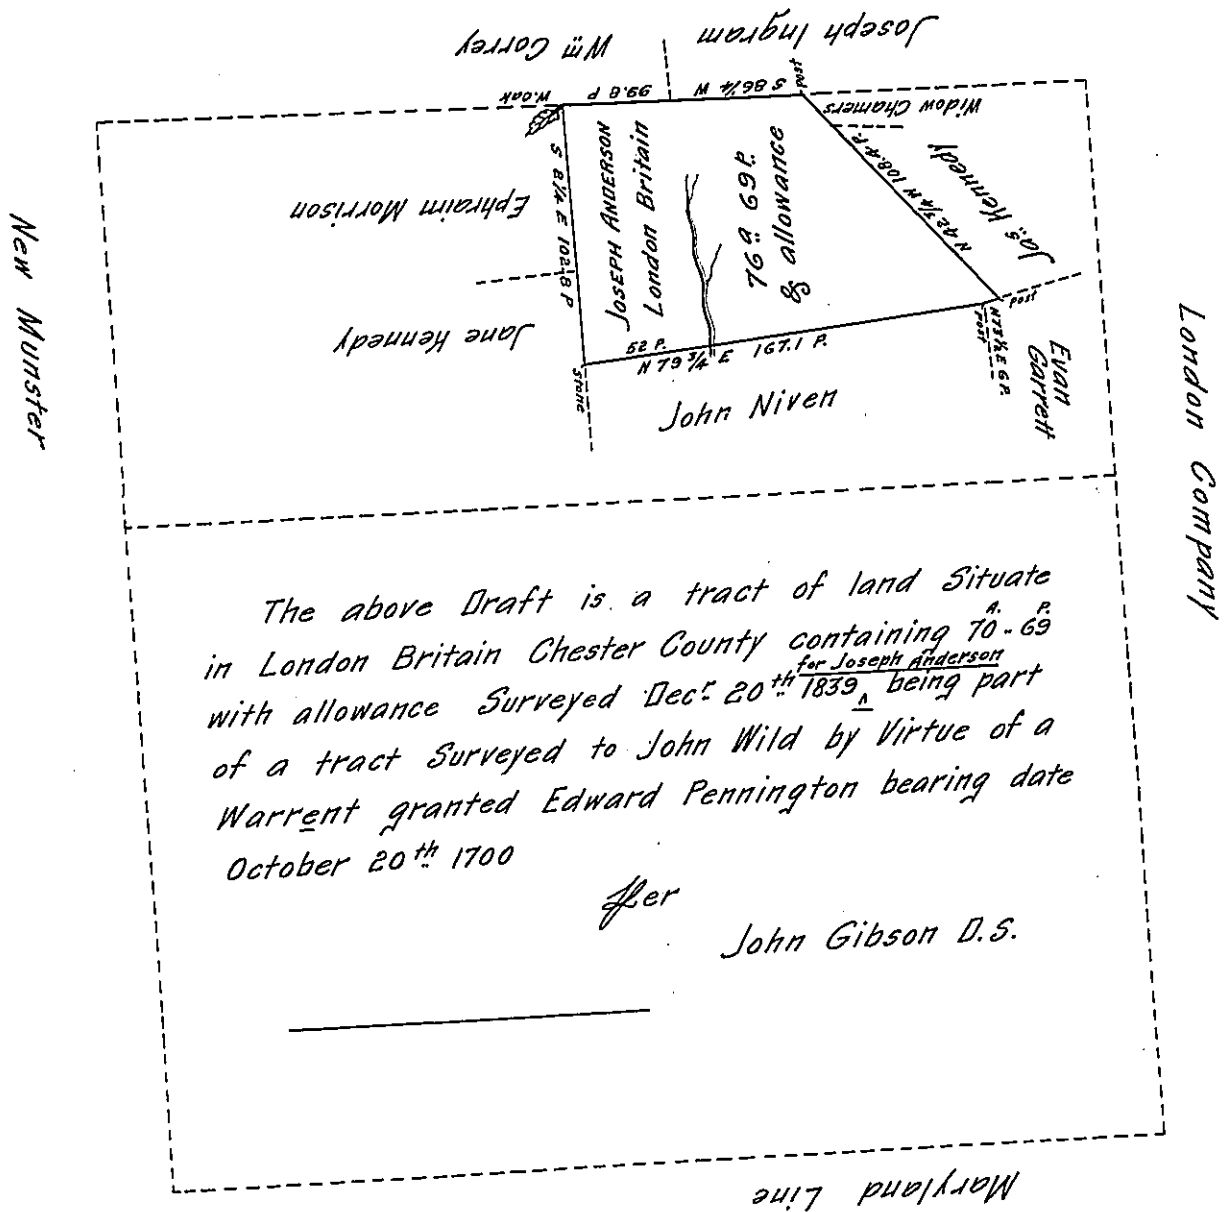 Joseph Ingram
Wm Correy
Widow Chamers
Jas Kennedy
S 86 1/4 W 99.8 P
W. oak
post
N 42 3/4 W 108.4 P.
S 8 1/4 E 102.8 P
Ephraim Morrison
Jane Kennedy
JOSEPH ANDERSON
London Britain
76 a 69 P.
& allowance
52 P.
N 79 3/4 E 167.1 P.
stone
post
post
N 73 1/2 E 6 P.
Evan
Garrett
John Niven
New Munster
London Company
The above Draft is a tract of land Situate
in London Britain Chester County containing 70 A. - 69 P.
with allowance Surveyed Decr 20th 1839 ^ for Joseph Anderson being part
of a tract Surveyed to John Wild by Virtue of a
Warrent granted Edward Pennington bearing date
October 20th 1700
Per
John Gibson D.S.
Maryland Line